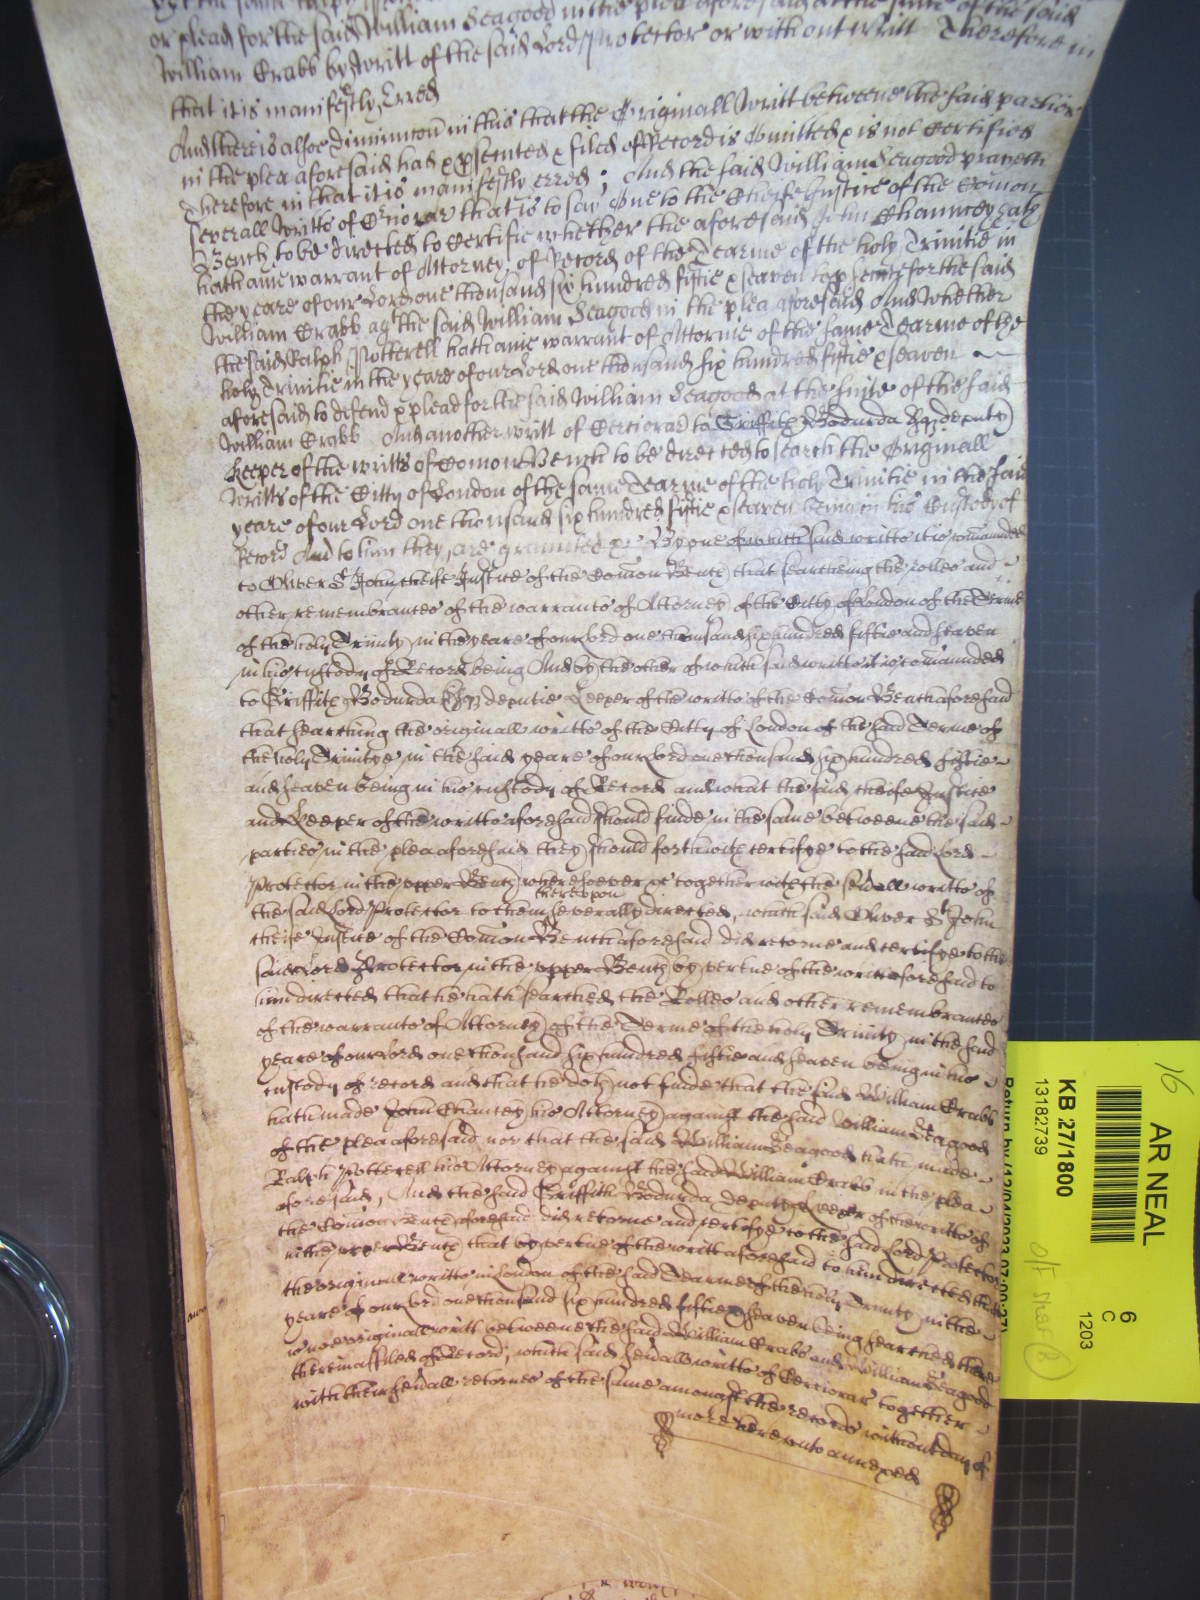 or plead for the said William Seagood in the plea aforesaid at the suite of the said
William Crabb by Writt of the said Lord Protector or without Writt Therefore in
that it is manifestly Erred
And there is alsoe diminucon in this that the Originall Writt betweene the said parties
in the plea aforesaid had & psented & filed of Record is Omitted & is not Certified
Therefore in that it is manifestly erred ; And the said William Seagood prayeth
severall Writts of Ctiorar that is to say One to the Cheife Justice of the Comon
Bench to be directed to Certifie whether the aforesaid John Chauncey
hath anie warrant of Attorney of Record of the Tearme of the holy Trinitie in
the yeare of our Lord one thousand six hundred fiftie & seaven to for the said
William Crabb agt the said William Seagood in the plea aforesaid And whether
the said Ralph Potterell hath anie warrant of Attornie of the same Tearme of the
holy Trinitie in the yeare of our Lord one thousand six hundred fiftie & seaven
aforesaid to defend & plead for the said William Seagood at the suite of the said
William Crabb And another writt of Certiorar to Griffith Bodurda Esqr deputy
keeper of the writts of Comon Bench to be directed to search the Originall
Writts of the Citty of London of the same Tearme of the holy Trinitie in the said
yeare of our Lord one thousand six hundred fiftie & seaven being in his Custody of
Record And to him they are graunted &c By one of which said writts it is comaunded
to Oliver St John cheife Justice of the Comon Bench that searcheing the rolles and
other remembrances of the warrants of Attorney of the Citty of London of the Terme
of the holy Trinity in the yeare of our Lord one thousand six hundred fiftie and seaven
in his custody of Record being And by the other of which said writts it is comaunded
to Griffith Bodurda Esqr deputie Keeper of the writts of the Comon Bench aforesaid
that searching the originall writts of the Citty of London of the said Terme of
the holy Trinitye in the said yeare of our Lord one thousand six hundred fiftie
and seaven being in his custody of Record and what the said cheife Justice
and Keeper of the writts aforesaid should finde in the same betweene the said
parties in the plea aforesaid they should forthwith certifye to the said Lord
Protector in the upper Bench wheresoever &c together with the sevall writts of
the said Lord Protector to them thereupon severally directed, which said Oliver St John
cheife Justice of the Comon Bench aforesaid did retorne and certifye to the
said Lord Protector in the upper Bench by vertue of the writt aforesaid to
him directed that he hath searched the Rolles and other remembrances
of the warrants of Attorney of the Terme of the holy Trinity in the said
yeare of our Lord one thousand six hundred fiftie and seaven being in his
custody of record and that he doth not finde that the said William Crabb
hath made John Chancey his Attorney against the said William Seagood
of the plea aforesaid nor that the said William Seagood hath made
Ralph Potterell his Attorney against the said William Crabb in the plea
aforesaid, And the said Griffith Bodurda deputy Keeper of the writts of
the Comon Bench aforesaid did retorne and certifye to the said Lord Protector
in the upper Bench that by vertue of the writt aforesaid to him directed
the originall writts in London of the said Tearme of the holy Trinity in the
yeare of our Lord one thousand six hundred fiftie & seaven being searched there
is noe originall writt betweene the said William Crabb and William Seagood
therein affiled of Record, which said sevall writts of Certiorar together
with their sevall retornes of the same amongst the records without day of
more here unto annexed
16
AR NEAL
6
C
1203
KB 27/1800
13182739